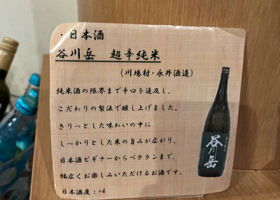 ・日本酒
谷川岳 超辛純米
(川場村・永井酒造)
純米酒の限界まで辛口を追及し、
こだわりの製法で醸し上げました。
きりっとした味わいの中に
しっかりとした米の旨みが広がり、
日本酒ビギナーからベテランまで、
幅広くお楽しみいただけるお酒です。
日本酒度:+4
谷川岳